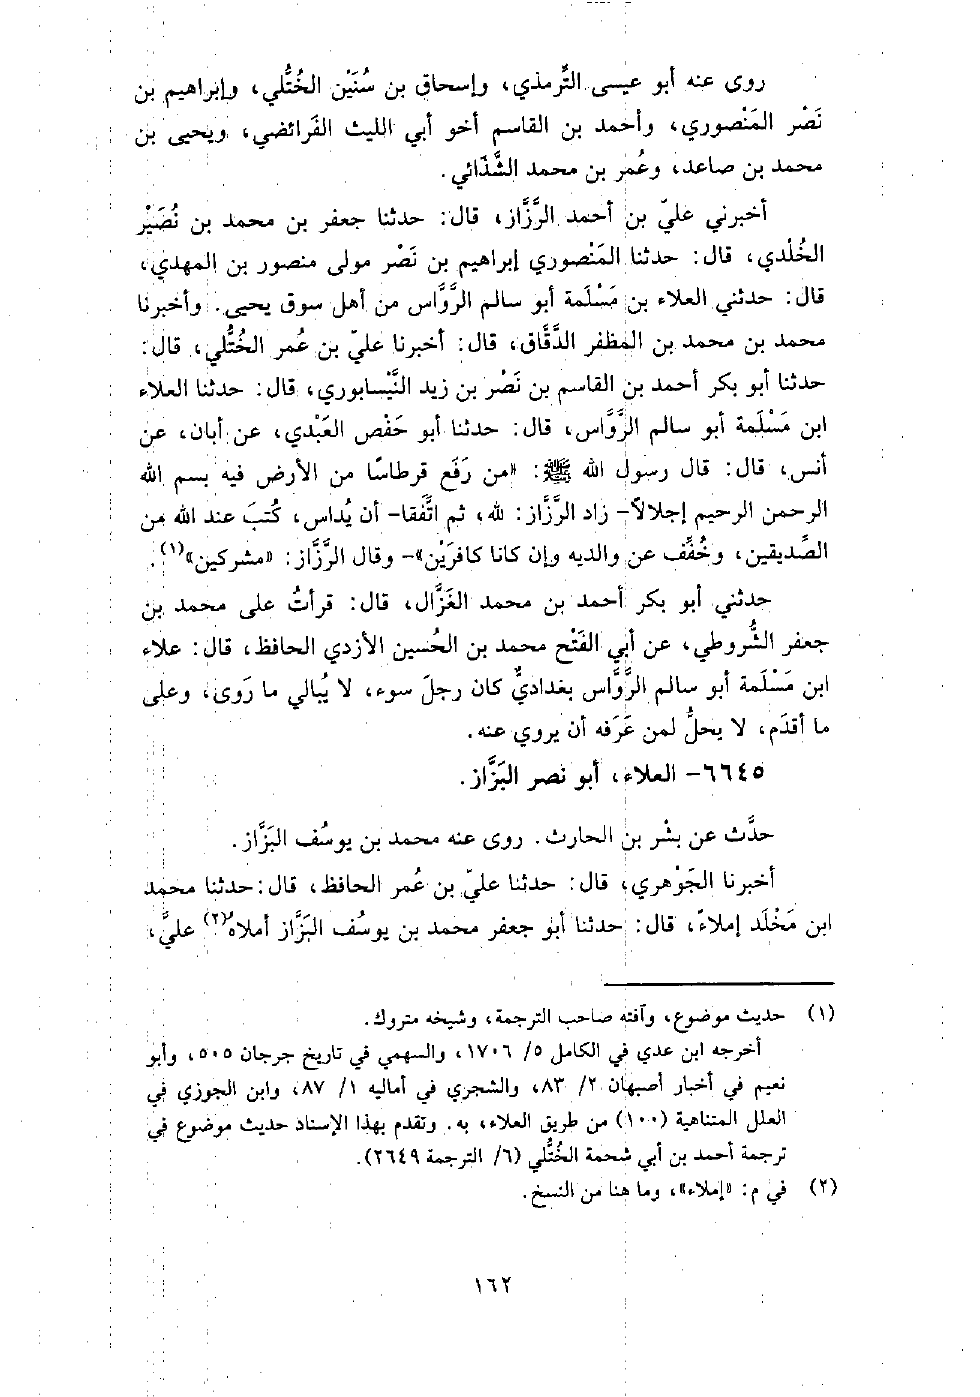 روى عنه أبو عيسى التِّرمذي، وإسحاق بن سُنَيْن الخُتَّلي، وإبراهيم بن
نَصْر المَنْصوري، وأحمد بن القاسم أخو أبي الليث الفَرائضي، ويحيى بن
محمد بن صاعد، وعُمر بن محمد الشَّذَائي.
أخبرني عليّ بن أحمد الرَّزَّاز، قال: حدثنا جعفر بن محمد بن نُصَيْر
الخُلْدي، قال: حدثنا المَنْصوري إبراهيم بن نَصْر مولى منصور بن المهدي،
قال: حدثني العلاء بن مَسْلَمة أبو سالم الرَّوَّاس من أهل سوق يحيى. وأخبرنا
محمد بن محمد بن المظفر الدَّقَّاق، قال: أخبرنا عليّ بن عُمر الخُتُّلي، قال:
حدثنا أبو بكر أحمد بن القاسم بن نَصْر بن زيد النَّيْسابوري، قال: حدثنا العلاء
ابن مَسْلَمة أبو سالم الرَّوَّاس، قال: حدثنا أبو حَفْص العَبْدي، عن أبان، عن
أنس، قال: قال رسول الله ﷺ: «من رَفَع قرطاسًا من الأرض فيه بسم الله
الرحمن الرحيم إجلالاً- زاد الرَّزَّاز: لله، ثم اتَّفَقا- أن يُداس، كُتبَ عند الله من
الصِّديقين، وخُفِّف عن والديه وإن كانا كافرَيْن»- وقال الرَّزَّاز: «مشركين»(١).
حدثني أبو بكر أحمد بن محمد الغَزَّال، قال: قرأتُ على محمد بن
جعفر الشُّروطي، عن أبي الفَتْح محمد بن الحُسين الأزدي الحافظ، قال: علاء
ابن مَسْلَمة أبو سالم الرَّوَّاس بغداديٌّ كان رجلَ سوء، لا يُبالي ما رَوى، وعلى
ما أقدَم، لا يحلُّ لمن عَرَفه أن يروي عنه.
٦٦٤٥- العلاء، أبو نصر البَزَّاز.
حدَّث عن بشْر بن الحارث. روى عنه محمد بن يوسُف البَزَّاز.
أخبرنا الجَوْهري، قال: حدثنا عليّ بن عُمر الحافظ، قال: حدثنا محمد
ابن مَخْلَد إملاءً، قال: حدثنا أبو جعفر محمد بن يوسُف البَزَّاز أملاه(٢) عليَّ،
(١) حديث موضوع، وآفته صاحب الترجمة، وشيخه متروك.
أخرجه ابن عدي في الكامل ٥/ ١٧٠٦، والسهمي في تاريخ جرجان ٥٠٥، وأبو
نعيم في أخبار أصبهان ٢/ ٨٣، والشجري في أماليه ١/ ٨٧، وابن الجوزي في
العلل المتناهية (١٠٠) من طريق العلاء، به. وتقدم بهذا الإسناد حديث موضوع في
ترجمة أحمد بن أبي شحمة الخُتُّلي (٦/ الترجمة ٢٦٤٩).
(٢) في م: «إملاء»، وما هنا من النسخ.
١٦٢